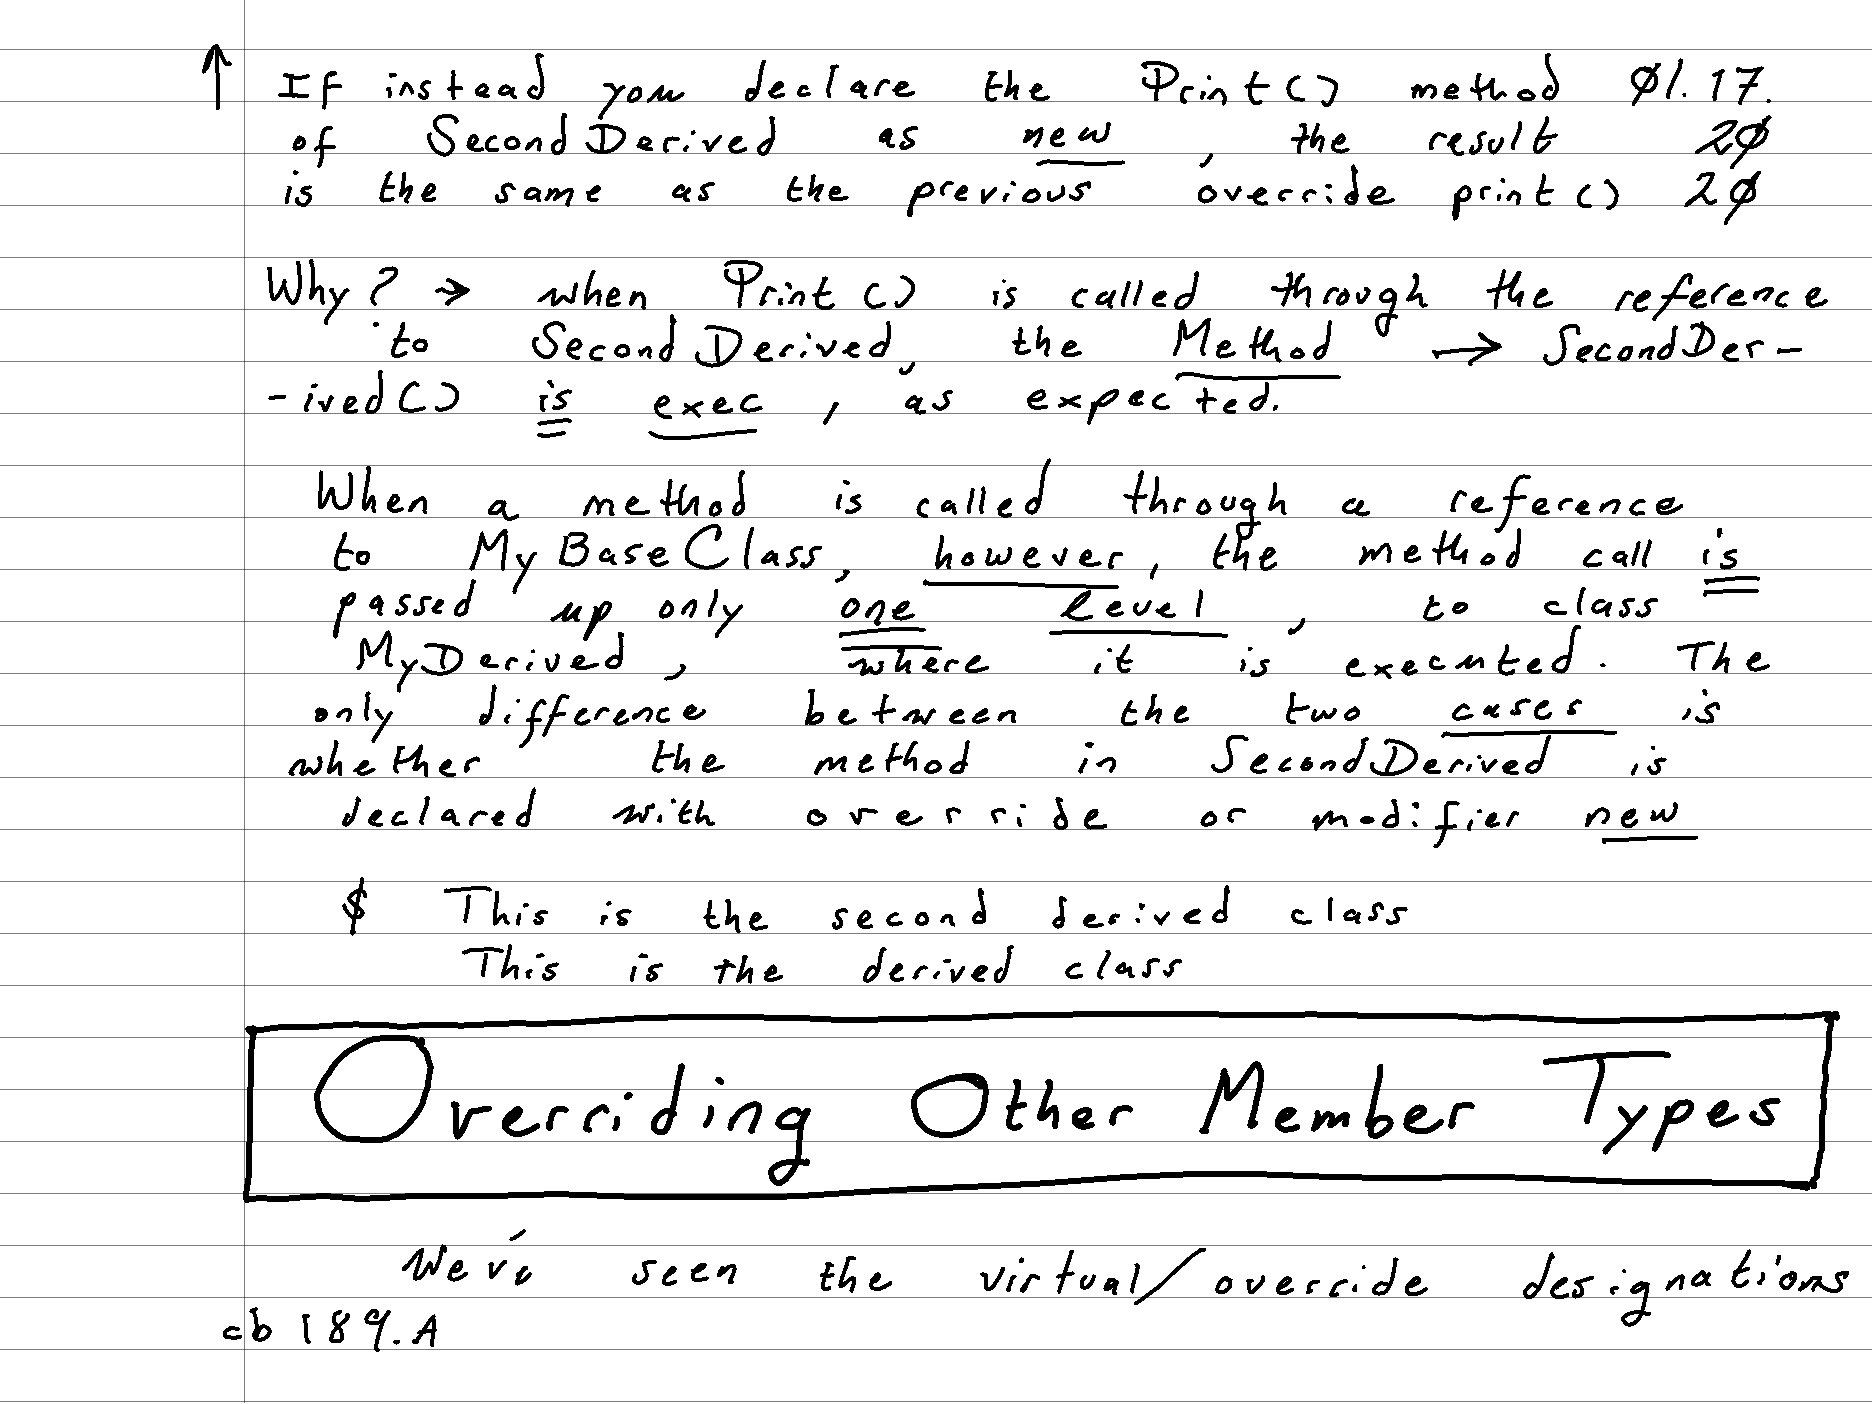 ↑ If instead you declare the Print() method Ø1.17.
of SecondDerived as new, the result 2Ø
is the same as the previous override print() 2Ø
Why? → when Print() is called through the reference
to SecondDerived, the Method → SecondDer-
-ived() is exec, as expected.
When a method is called through a reference
to MyBaseClass, however, the method call is
passed up only one level, to class
MyDerived, where it is executed. The
only difference between the two cases is
whether the method in SecondDerived is
declared with override or modifier new
$ This is the second derived class
This is the derived class
Overriding Other Member Types
We've seen the virtual/override designations
cb 189.A